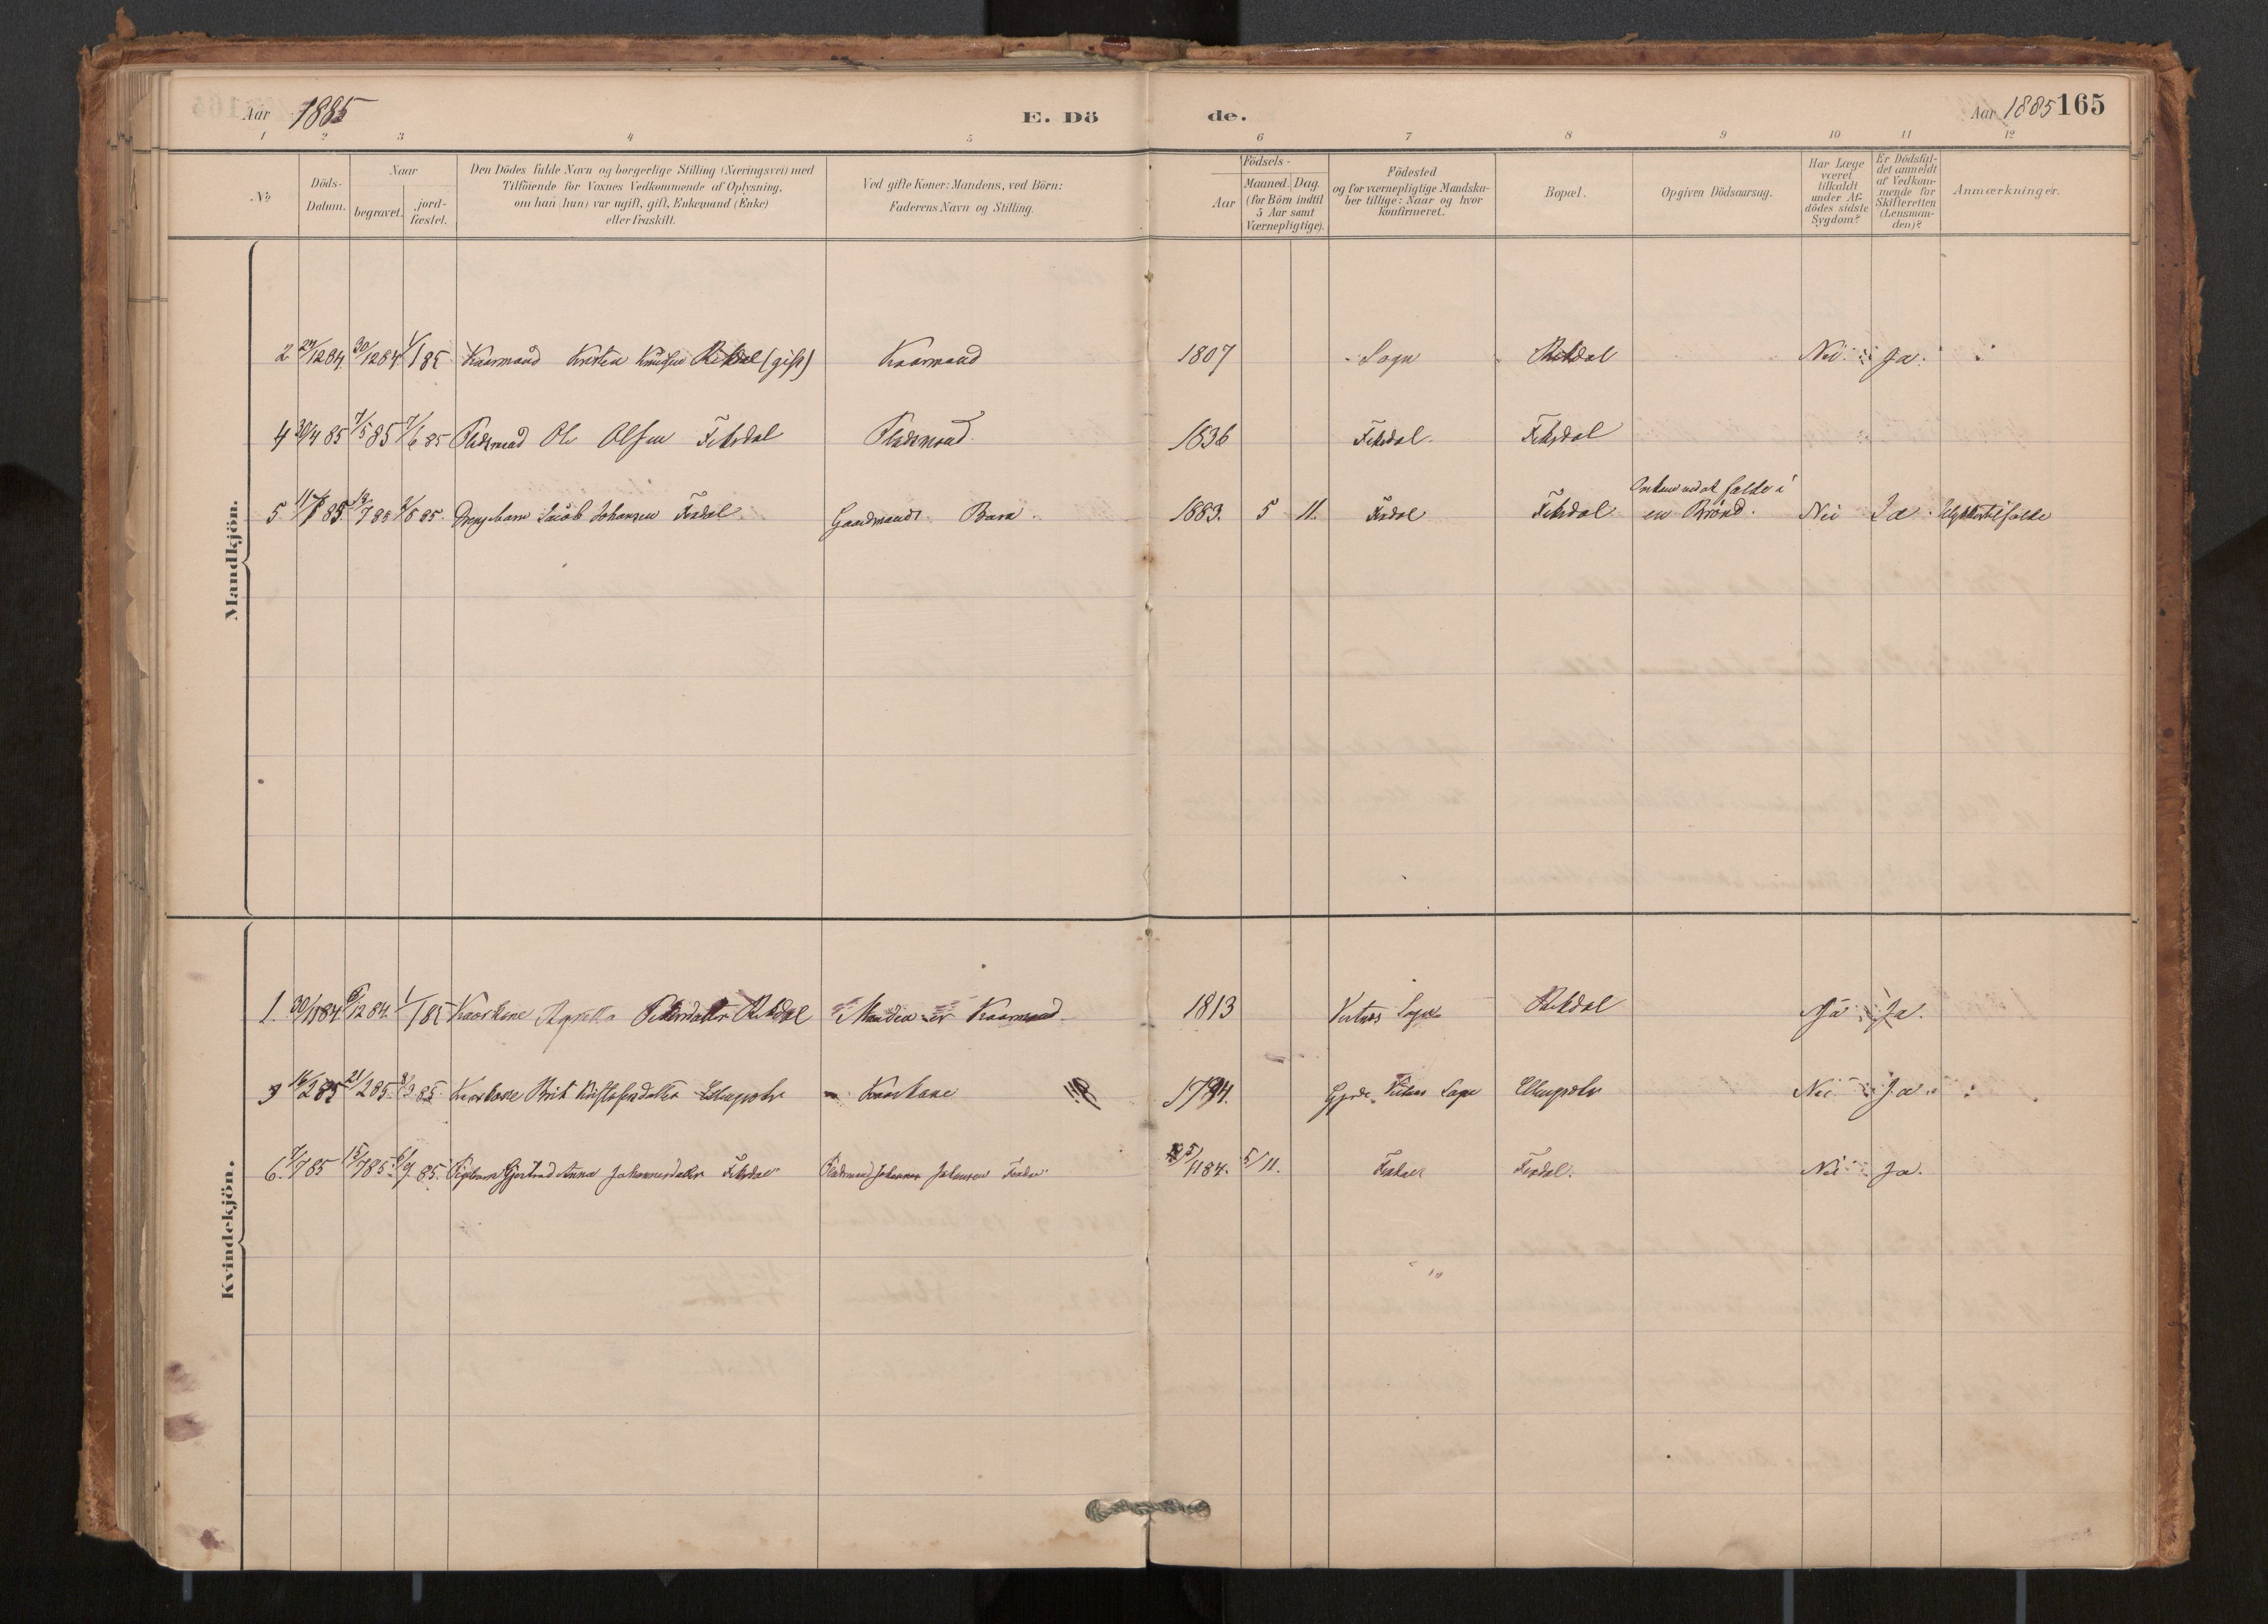 Aar 1885
E. Dö
de.
Aar 1885 165
1 2 3 4 5 6 7 8 9 10 11 12
No
Döds-
Datum.
Naar
begravet.
jord-
fæstet.
Den Dödes fulde Navn og borgerlige Stilling (Næringsvei) med
Tilföiende for Voxnes Vedkommende af Oplysning,
om han (hun) var ugift, gift, Enkemand (Enke)
eller fraskilt.
Ved gifte Koner: Mandens, ved Börn:
Faderens Navn og Stilling.
Födsels-
Aar
Maaned. Dag.
(for Börn indtil
5 Aar samt
Værnepligtige).
Födested
og for værnepligtige Mandska-
ber tillige: Naar og hvor
konfirmeret.
Bopæl.
Opgiven Dödsaarsag.
Har Læge
været
tilkaldt
under Af-
dödes sidste
Sygdom?
Er Dödsfal-
det anmeldt
af Vedkom-
mende for
Skifteretten
(Lensman-
den)?
Anmærkninger.
Mandkjön.
2 24/12 84. 30/12 84. 1/1 85 Kaarmand Kristen Knudsen Rekdal (gift) Kaarmand 1807 Sogn Rekdal Nei Ja.
4 30/4 85 7/5 85 7/6 85 Pladsmand Ole Olsen Fiksdal Pladsmand 1836 Fiksdal Fiksdal
5 11/7 85 19/7 85 2/8 85. Drengebarn Jacob Johansen Fixdal Gaardmands Barn 1883. 5 11. Fixdal Fiksdal
en Brønd. Nei Ja Ulykkestilfælde
Kvindekjön.
1. 30/11 84 6/12 84. 1/1 85 Kaarkone Pedersdatter Rekdal Manden er Kaarmand 1813 Sogn Rekdal Ja.
3 14/2 85 21/2 85. 8/3 85. Kaarkone Brit Kristofersdatter Kaarkone 1794. Sogn Nei Ja.
6. 7/7 85 15/7 85 6/9 85. Pigebarn Gjertrud Anna Johannesdatter Fiksdal Pladsmand Johannes Johansen Fixdal 5/11 84. 5/11. Fixdal Fixdal. Nei Ja.